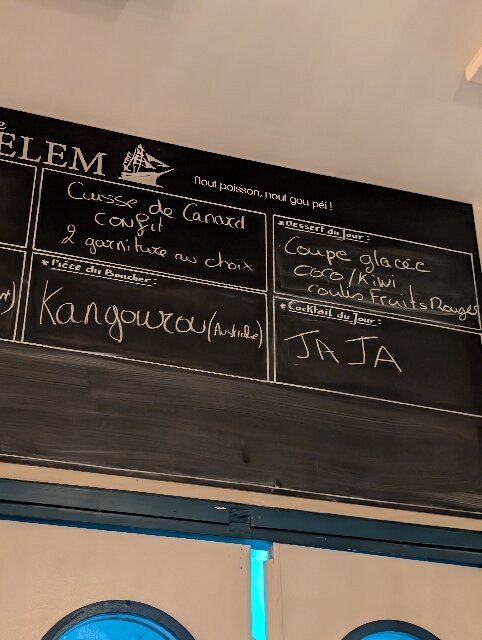 ELEM
Nout poisson, nout gou péi !
Cuisse de Canard
confit
2 garniture au choix
*Pièce du Boucher:
Kangourou (Australie)
*Dessert du Jour:
Coupe glacée
coco/Kiwi
coulis Fruits Rouges
*Cocktail du Jour:
JAJA